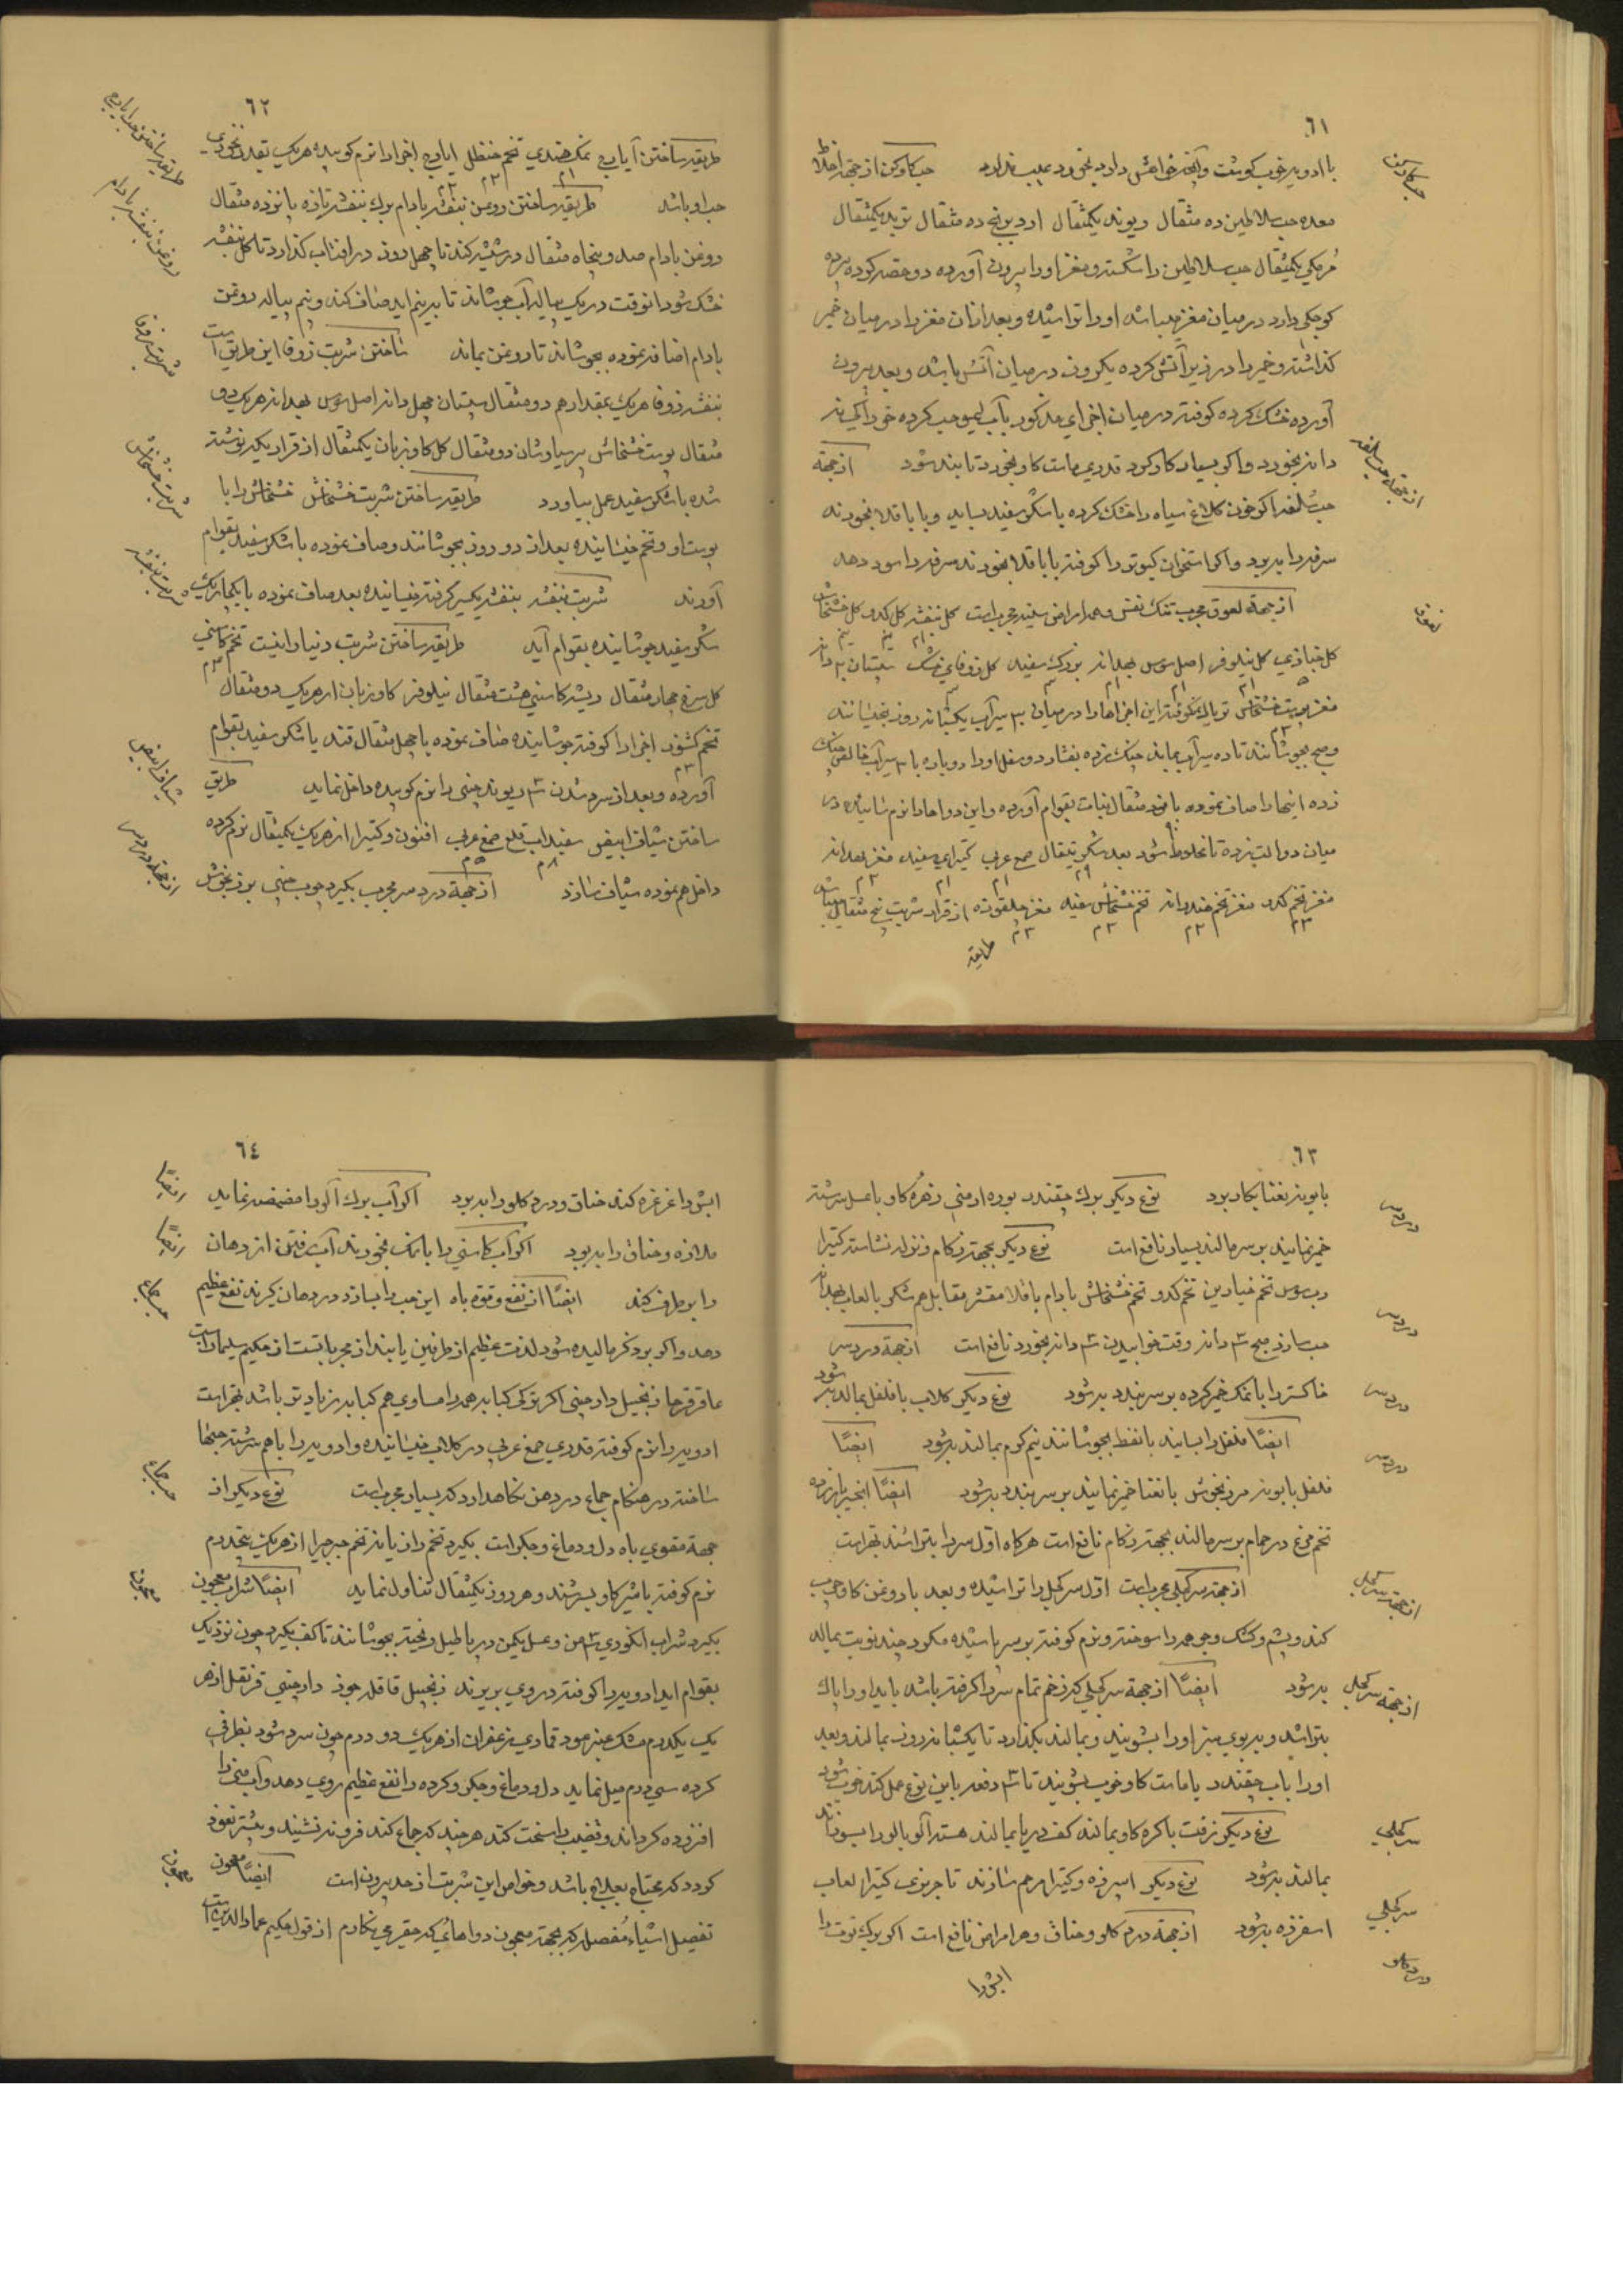 ٦١
با ادویه خوب کوشت و آنچه خواهش دارد بخورد عیب ندارد حب کاوکن از جهة اخلاط
معده حب سلاطین ده مثقال ریوند یکمثقال ده مثقال تربد یکمثقال
یکمثقال حب سلاطین را شکسته و مغز او را بیرون آورده دو حصه کرده پرده
کوچکی دارد در میان مغز میباشد او را تراشیده و بعد از آن مغز را در میان خمیر
کذاشته و خمیر را در زیر آتش کرده یکروز در میان آتش باشد و بعد بیرون
آورده خشک کرده کوفته در میان اجزای مذکور بآب لیمو حب کرده خوراک
دانه بخورد و اکر بسیار کار کرد قدری ماست کاو بخورد تا بند شود از جهة
اکر خون کلاغ سیاه را خشک کرده با شکر سفید بساید و با باقلا بخورند
سرفه را ببرد و اکر استخوان کبوتر را کوفته با باقلا بخورند سرفه را سود دهد
از جهة لعوق مجرب تنک نفس و همه امراض سینه مجرب است کل بنفشه کل کدو کل خشخاش
کل خبازی کل نیلوفر اصل سوس بهدانه بزرک سفید کل زوفای خشک سپستان دانه
مغز پوست خشخاش این اجزاها را در میان سیر آب یکشبانه روز بخیسانند
و صبح بجوشانند تا ده سیر آب بماند چنک زده بفشارد و ثفل او را دوباره با سیر آب خالص چنک
زده اینها را صاف نموده با نود مثقال نبات بقوام آورده و این دواها را نرم سائیده در
میان دوا لت زده تا مخلوط شود بعد شکر تیغال صمغ عربی کتیرای سفید مغز بهدانه
مغز تخم کدو مغز تخم هندوانه تخم خشخاش سفید مغز چلقوزه از قرار شربت پنج مثقال میباشد
طریقه
لعوق
٦٢
طریقه ساختن آیارج نمک هندی تخم حنظل ایارج اجزا را نرم کوبیده هریک بقدر نخودی
حب او باشد طریقه ساختن روغن بنفشه بادام برک بنفشه تازه پانزده مثقال
روغن بادام صد و پنجاه مثقال در شیشه کند تا چهل روز در آفتاب کذارد تا کل بنفشه
خشک شود آنوقت در یک پیاله آب جوشاند تا به نیم اید صاف کند و نیم پیاله روغن
بادام اضافه نموده بجوشاند تا روغن بماند ساختن شربت زوفا این طریق است
بنفشه زوفا هریک بمقدار هم دو مثقال سپستان چهل دانه اصل سوس بهدانه هریک دو
مثقال پوست خشخاش پرسیاوشان دو مثقال کل کاو زبان یکمثقال از قرار یکه نوشته
شده با شکر سفید عمل بیاورد طریقه ساختن شربت خشخاش خشخاش را با
پوست او و تخم خیسانیده بعد از دو روز بجوشانند و صاف نموده با شکر سفید بقوام
آورند شربت بنفشه بنفشه یکسیر کرفته خیسانیده بعد صاف نموده با یکچاریک
شکر سفید جوشانیده بقوام آید طریقه ساختن شربت دینار اینست تخم کاسنی
کل سرخ چهار مثقال ریشه کاسنی هشت مثقال نیلوفر کاو زبان از هریک دو مثقال
تخم کشوث اجزا را کوفته جوشانیده صاف نموده با چهل مثقال قند یا شکر سفید بقوام
آورده و بعد از سرد شدن ریوند چینی را نرم کوبیده داخل نماید طریق
ساختن شیاف ابیض سفیداب قلع صمغ عربی افیون و کتیرا از هریک یکمثقال نرم کرده
داخل هم نموده شیاف سازد از جهة درد سر مجرب بکیرد چوب چینی
شربت زوفا
شربت خشخاش
شربت بنفشه
شیاف ابیض
از جهة درد سر
٦٣
بابونه نعنا بکار برد نوع دیکر برک چقندر بوره ارمنی زهره کاو با عسل سرشته
خمیر نمایند بر سر مالند بسیار نافع است نوع دیکر بجهة زکام و نزله نشاسته کتیرا
رب سوس تخم خیارین تخم کدو تخم خشخاش بادام باقلا مقشر مقابل هم شکر با لعاب بهدانه
حب سازد صبح دانه وقت خوابیدن دانه بخورد نافع است از جهة درد سر
خاکستر را با نمک خمیر کرده بر سر بندد به شود نوع دیکر کلاب با فلفل بمالد به شود
ایضًا فلفل را بسایند با نفط بجوشانند نیم کرم بمالند به شود ایضًا
فلفل بابونه مرزنجوش با نعنا خمیر نمایند بر سر بندد به شود ایضًا انجیر با زرده
تخم مرغ در حمام بر سر مالند بجهة زکام نافع است هرکاه اول سر را بتراشند بهتر است
از جهة سر کچلی مجرب است اول سر کچل را تراشیده و بعد با روغن کاو چرب
کند و پشم و کشک و جو همه را سوخته و نرم کوفته بر سر پاشیده مکرر چند نوبت بماله
به شود ایضًا از جهة سر کچلی که زخم تمام سر را کرفته باشد باید او را پاک
بتراشد و او را بشویند و بمالند بکذارد تا یکشبانه روز بمالند و بعد
او را باب چقندر یا ماست کاو خوب بشویند تا دفعه باین نوع عمل کند خوب شود
نوع دیکر زفت با کره کاو بمالند کف دریا بمالند هسته آلو بالو را بسوزانند
بمالند به شود نوع دیکر اسپرزه و کتیرا مرهم سازند تاجریزی کتیرا لعاب
اسفرزه به شود از جهة درد کلو و خناق و هر امراض نافع است اکر برک توت را
ابش را
درد سر
درد سر
درد سر
درد سر
از جهة سر کچل
از جهة سر کچل
سر کچلی
سر کچلی
درد کلو
٦٤
ابش را غرغره کند خناق و درد کلو را ببرد اکر آب برک آلو را مضمضه نماید
ملازه و خناق را ببرد اکر آب کاسنی را با نمک بخورند آب رفتن از دهان
را برطرف کند ایضًا از نفع و قوه باه این حب را بسازد در دهان کیرند نفع عظیم
دهد و اکر بر ذکر مالیده شود لذت عظیم از طرفین یابند از مجرباتست از حکیم سلیمان است
عاقرقرحا زنجبیل دارچینی اکر ترکی کبابه همه را مساوی هم کبابه زیاد تر باشد بهتر است
ادویه را نرم کوفته قدری صمغ عربی در کلاب خیسانیده و ادویه را با هم سرشته حبها
ساخته در هنکام جماع در دهن نکاهدارد که بسیار مجرب است نوع دیکر از
جهة مقوی باه دل و دماغ و جکر است بکیرد تخم رازیانه تخم جرجیر از هریک پنجدرم
نرم کوفته با شیر کاو بسرشند و هر روز یکمثقال تناول نماید ایضًا شراب معجون
بکیرد شراب انکوری من و عسل یکمن در پاطیل ریخته بجوشانند تا کف بکیرد چون نزدیک
بقوام اید ادویه را کوفته در روی بریزند زنجبیل قاقله جوز دارچینی قرنفل از هر
یک یکدرم مشک عنبر عود قماری زعفران از هریک دو درم چون سرد شود بظرفی
کرده سی درم میل نماید دل و دماغ و جکر و کرده را نفع عظیم روی دهد و آب منی را
افزوده کرداند و قضیب را سخت کند هرچند که جماع کند فرو ننشیند و بیشتر نعوذ
کردد که محتاج بعلاج باشد و خواص این شربت از حد بیرون است ایضًا معجون
تفصیل اشیاء مفصله که بجهة معجون دواهائی که حقیر می نکارم از قول حکیم عماد الدین است
ایضًا
ایضًا
حب جماع
حب جماع
معجون
معجون